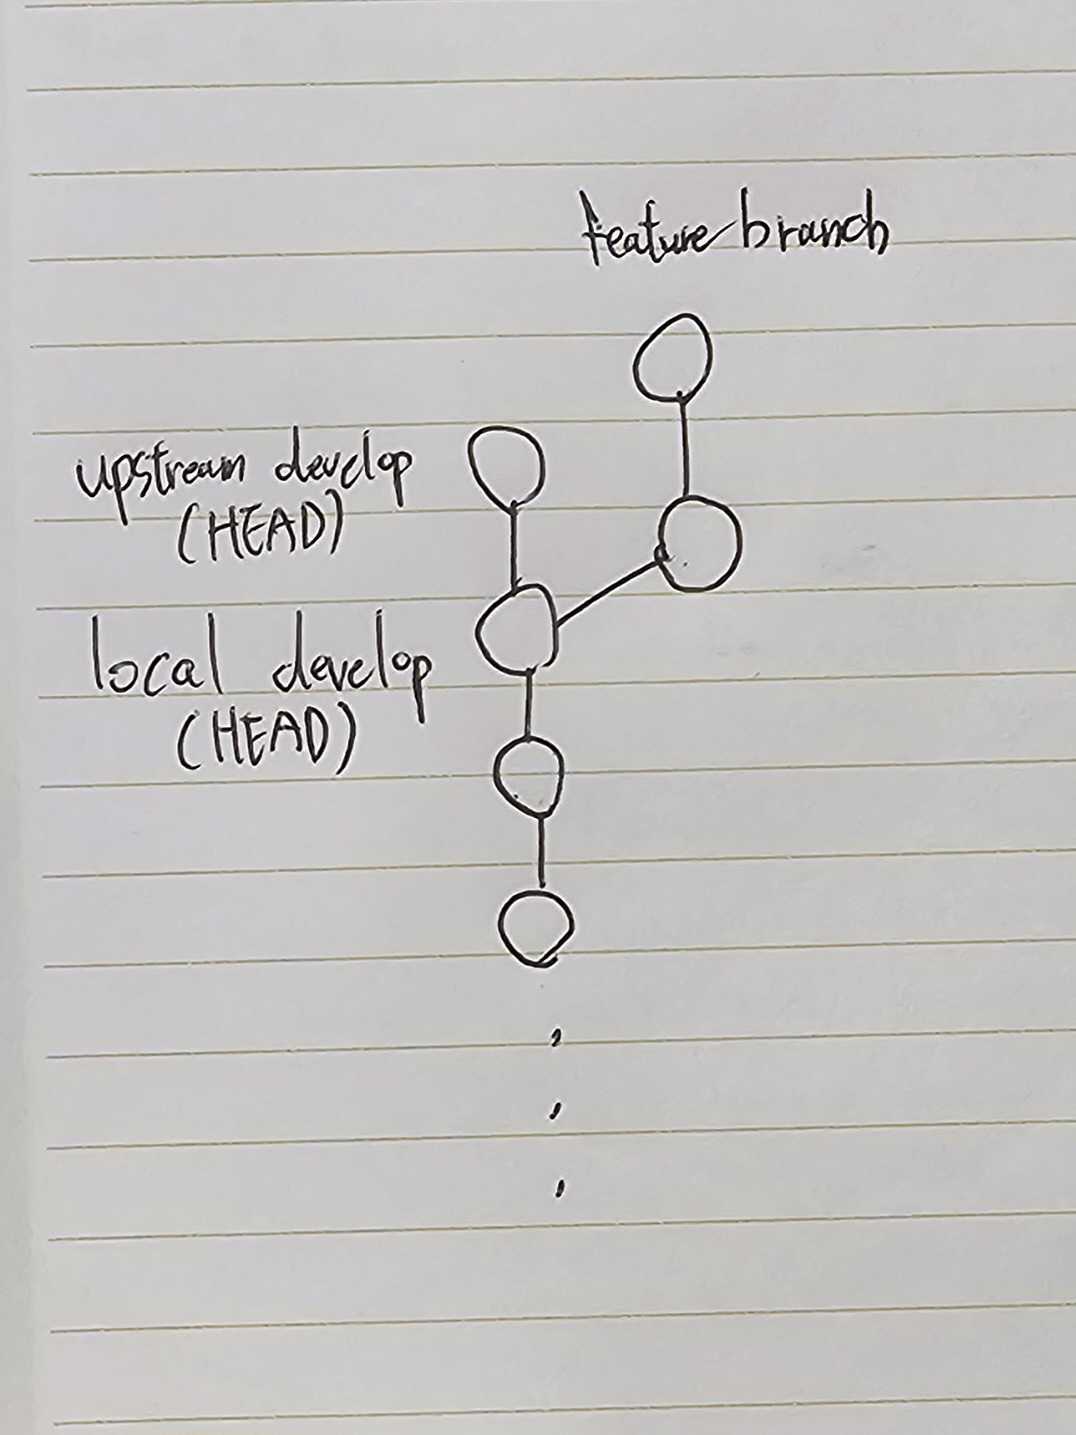 feature branch
upstream develop
(HEAD)
local develop
(HEAD)